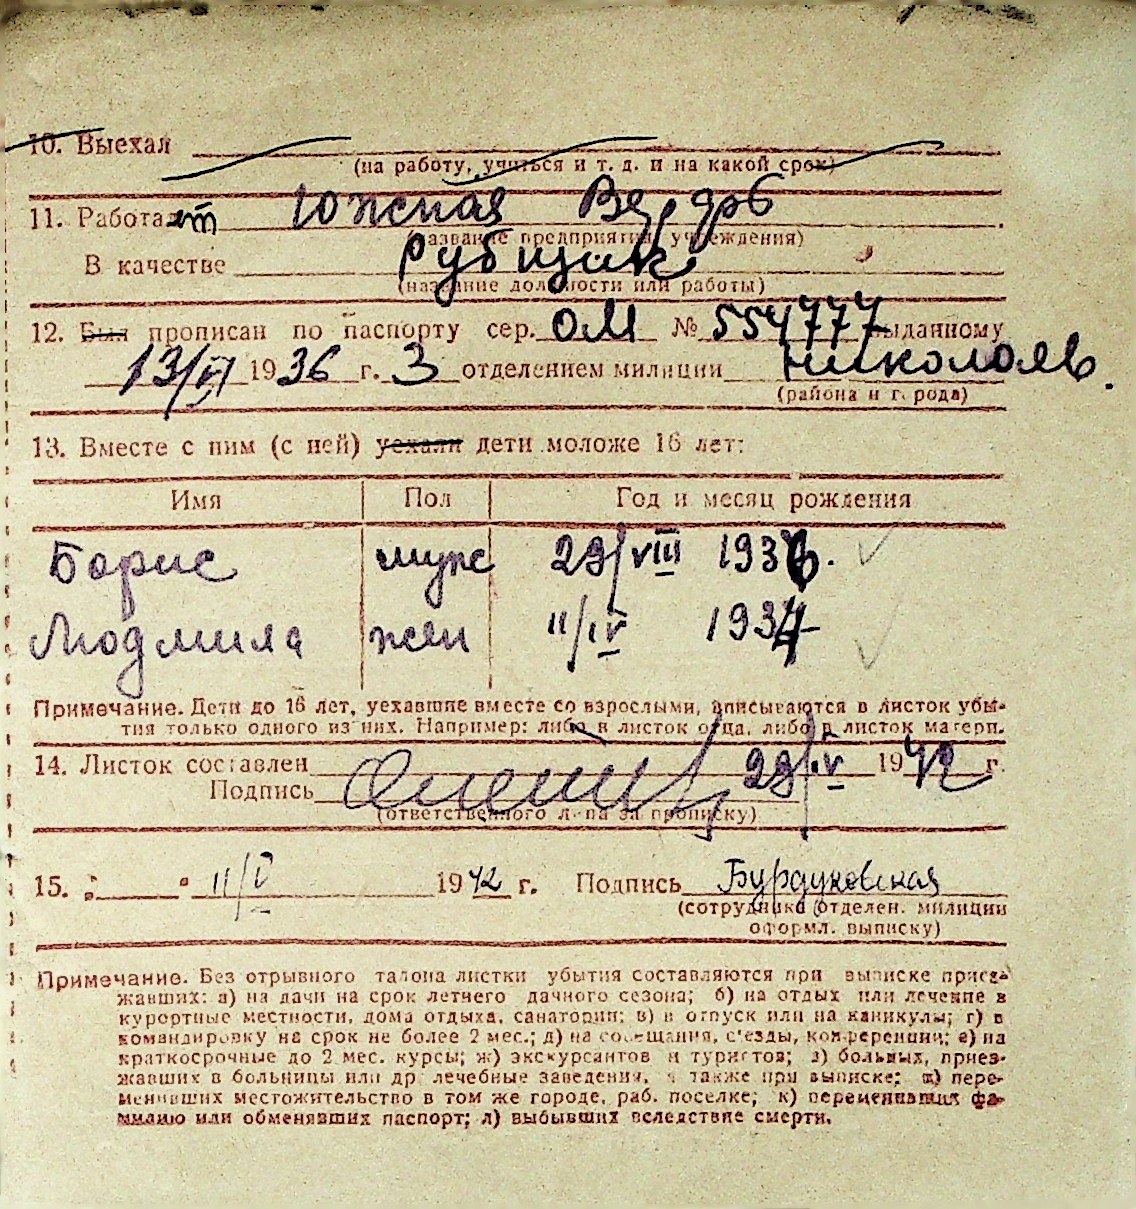 10. Выехал
(на работу, учиться и т. д. и на какой срок)
11. Работает Южная
(название предприятия, учреждения)
В качестве Рубщик
(название должности или работы)
12. Был прописан по паспорту сер. ОМ № 554777 выданному
13/VI 1936 г. 3 отделением милиции Николаев.
(района и города)
13. Вместе с ним (с ней) уехали дети моложе 16 лет:
Имя Пол Год и месяц рождения
Борис муж 29/VIII 193
Людмила жен 11/IV 1934
Примечание. Дети до 16 лет, уехавшие вместе со взрослыми, вписываются в листок убы-
тия только одного из них. Например: либо в листок отца, либо в листок матери.
14. Листок составлен 29/IV 1942 г.
Подпись
(ответственного лица за прописку)
15. " " 11/V 1942 г. Подпись Бурдуковская
(сотрудника отделен. милиции
оформл. выписку)
Примечание. Без отрывного талона листки убытия составляются при выписке приез-
жавших: а) на дачи на срок летнего дачного сезона; б) на отдых или лечение в
курортные местности, дома отдыха, санатории; в) в отпуск или на каникулы; г) в
командировку на срок не более 2 мес.; д) на совещания, с'езды, конференции; е) на
краткосрочные до 2 мес. курсы; ж) экскурсантов и туристов; з) больных, приез-
жавших в больницы или др. лечебные заведения, а также при выписке; и) пере-
менивших местожительство в том же городе, раб. поселке; к) переменивших фа-
милию или обменявших паспорт; л) выбывших вследствие смерти.